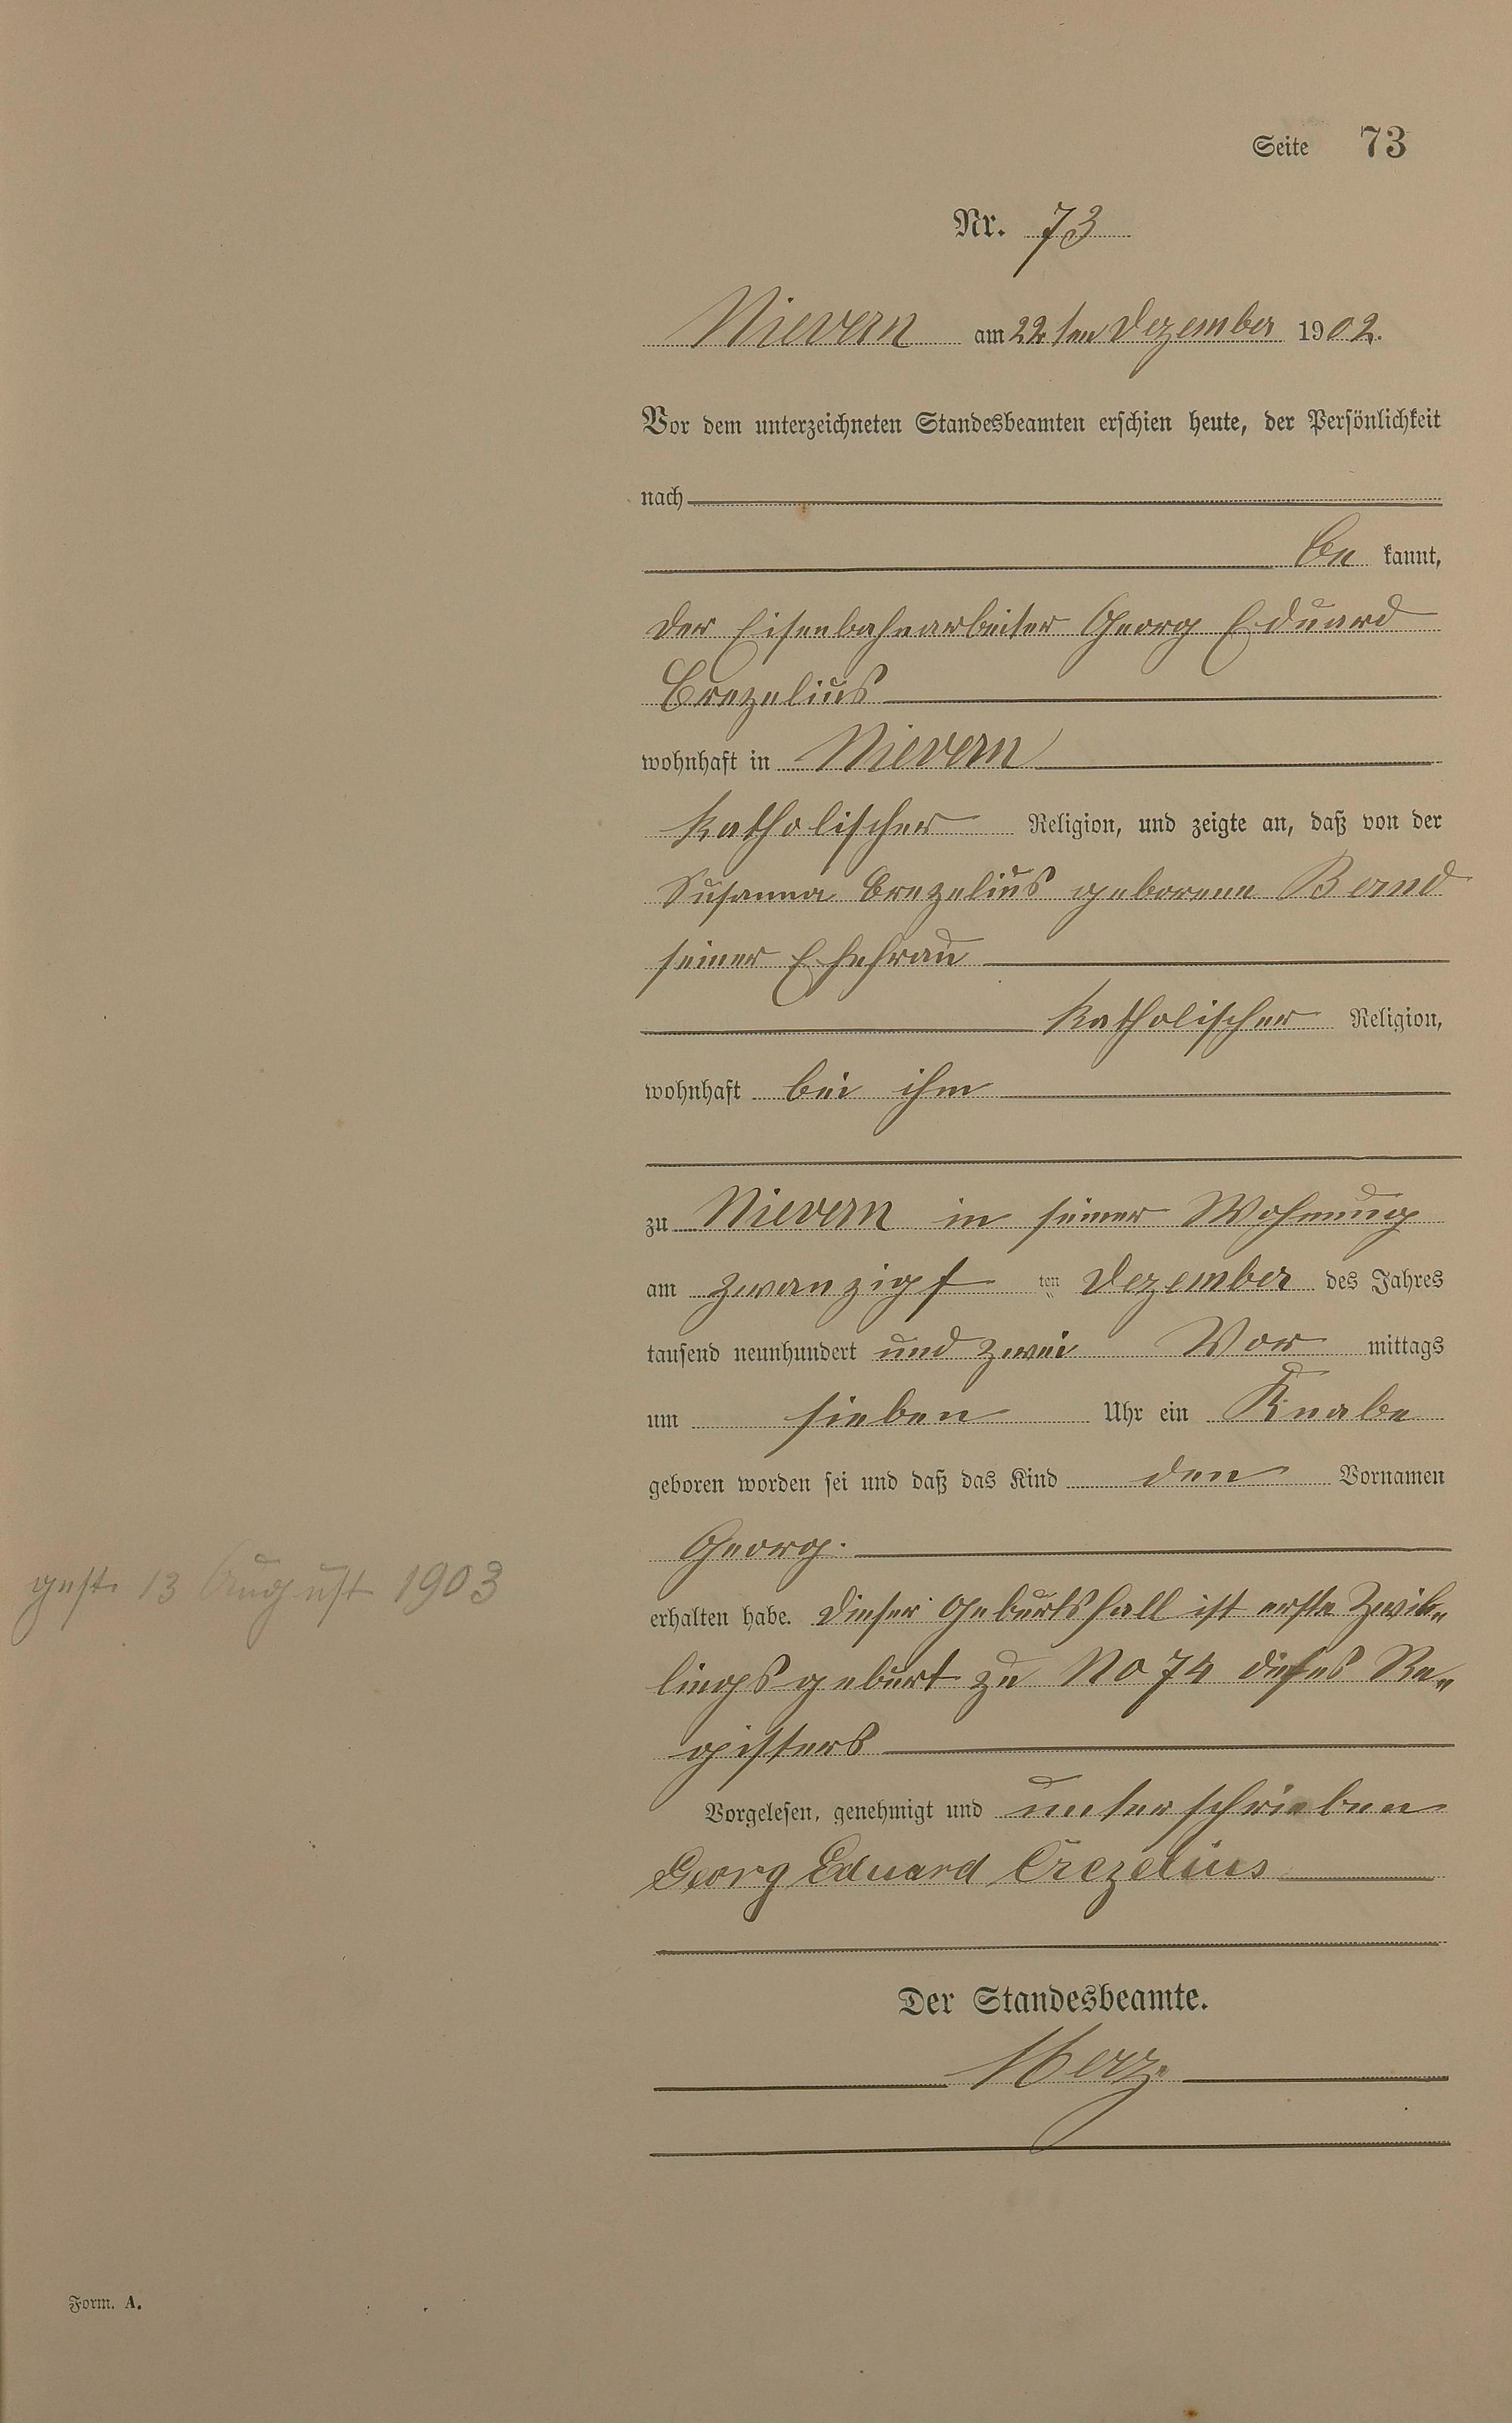 Seite 73
Nr. 73
Nievern am 22ten Dezember 1902.
Vor dem unterzeichneten Standesbeamten erschien heute, der Persönlichkeit
nach
be kannt,
der Eisenbahnarbeiter Georg Eduard
Crezelius
wohnhaft in Nievern
katholischer Religion, und zeigte an, daß von der
Susanna Crezelius geborene Band
seiner Ehefrau
katholischer Religion,
wohnhaft bei ihm
zu Nievern in seiner Wohnung
am zwanzigs ten Dezember des Jahres
tausend neunhundert und zwei Vor mittags
um sieben Uhr ein Knabe
geboren worden sei und daß das Kind den Vornamen
Georg.
gest. 13 August 1903
erhalten habe. Dieser Geburtsfall ist erste Zwil„
lingsgeburt zu No 74 dieses Re„
gisters
Vorgelesen, genehmigt und unterschrieben
Georg Eduard Crezelius
Der Standesbeamte.
Merz.
Form. A.